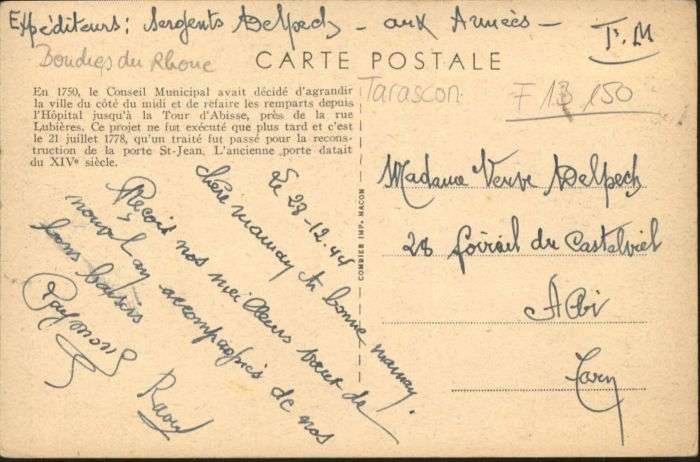 Expéditeurs: Sergents Delpech - aux Armées - T.M
Bouches du Rhone
CARTE POSTALE
En 1750, le Conseil Municipal avait décidé d'agrandir
la ville du côté du midi et de refaire les remparts depuis
l'Hôpital jusqu'à la Tour d'Abisse, près de la rue
Lubières. Ce projet ne fut exécuté que plus tard et c'est
le 21 juillet 1778, qu'un traité fut passé pour la recons-
truction de la porte St-Jean. L'ancienne porte datait
du XIVe siècle.
Tarascon
F 150
COMBIER IMP. MACON
Le 28-12.44
chère mamay et bonne mamay.
Reçois nos meilleurs vœux de
nouvel an accompagnés de nos
bons baisers
Raymond
Raoul
Madame Veuve Delpech
28 foirail du Castelviel
Albi
Tarn